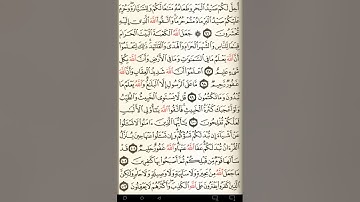 أُحِلَّ لَكُمْ صَيْدُ الْبَحْرِ وَطَعَامُهُ مَتَاعًا لَّكُمْ وَلِلسَّيَّارَةِ وَحُرِّمَ
عَلَيْكُمْ صَيْدُ الْبَرِّ مَا دُمْتُمْ حُرُمًا وَاتَّقُوا اللَّهَ الَّذِي إِلَيْهِ
تُحْشَرُونَ ٩٦ ۞ جَعَلَ اللَّهُ الْكَعْبَةَ الْبَيْتَ الْحَرَامَ
قِيَامًا لِّلنَّاسِ وَالشَّهْرَ الْحَرَامَ وَالْهَدْيَ وَالْقَلَٰئِدَ ذَٰلِكَ لِتَعْلَمُوا
أَنَّ اللَّهَ يَعْلَمُ مَا فِي السَّمَٰوَٰتِ وَمَا فِي الْأَرْضِ وَأَنَّ اللَّهَ بِكُلِّ
شَيْءٍ عَلِيمٌ ٩٧ اعْلَمُوا أَنَّ اللَّهَ شَدِيدُ الْعِقَابِ وَأَنَّ اللَّهَ
غَفُورٌ رَّحِيمٌ ٩٨ مَّا عَلَى الرَّسُولِ إِلَّا الْبَلَٰغُ وَاللَّهُ يَعْلَمُ
مَا تُبْدُونَ وَمَا تَكْتُمُونَ ٩٩ قُل لَّا يَسْتَوِي الْخَبِيثُ وَالطَّيِّبُ
وَلَوْ أَعْجَبَكَ كَثْرَةُ الْخَبِيثِ فَاتَّقُوا اللَّهَ يَٰأُولِي الْأَلْبَٰبِ
لَعَلَّكُمْ تُفْلِحُونَ ١٠٠ يَٰأَيُّهَا الَّذِينَ ءَامَنُوا لَا تَسْـَٔلُوا
عَنْ أَشْيَاءَ إِن تُبْدَ لَكُمْ تَسُؤْكُمْ وَإِن تَسْـَٔلُوا عَنْهَا حِينَ يُنَزَّلُ
الْقُرْءَانُ تُبْدَ لَكُمْ عَفَا اللَّهُ عَنْهَا وَاللَّهُ غَفُورٌ حَلِيمٌ ١٠١ قَدْ
سَأَلَهَا قَوْمٌ مِّن قَبْلِكُمْ ثُمَّ أَصْبَحُوا بِهَا كَٰفِرِينَ ١٠٢
مَا جَعَلَ اللَّهُ مِنۢ بَحِيرَةٍ وَلَا سَائِبَةٍ وَلَا وَصِيلَةٍ وَلَا حَامٍ وَلَٰكِنَّ
الَّذِينَ كَفَرُوا يَفْتَرُونَ عَلَى اللَّهِ الْكَذِبَ وَأَكْثَرُهُمْ لَا يَعْقِلُونَ ١٠٣